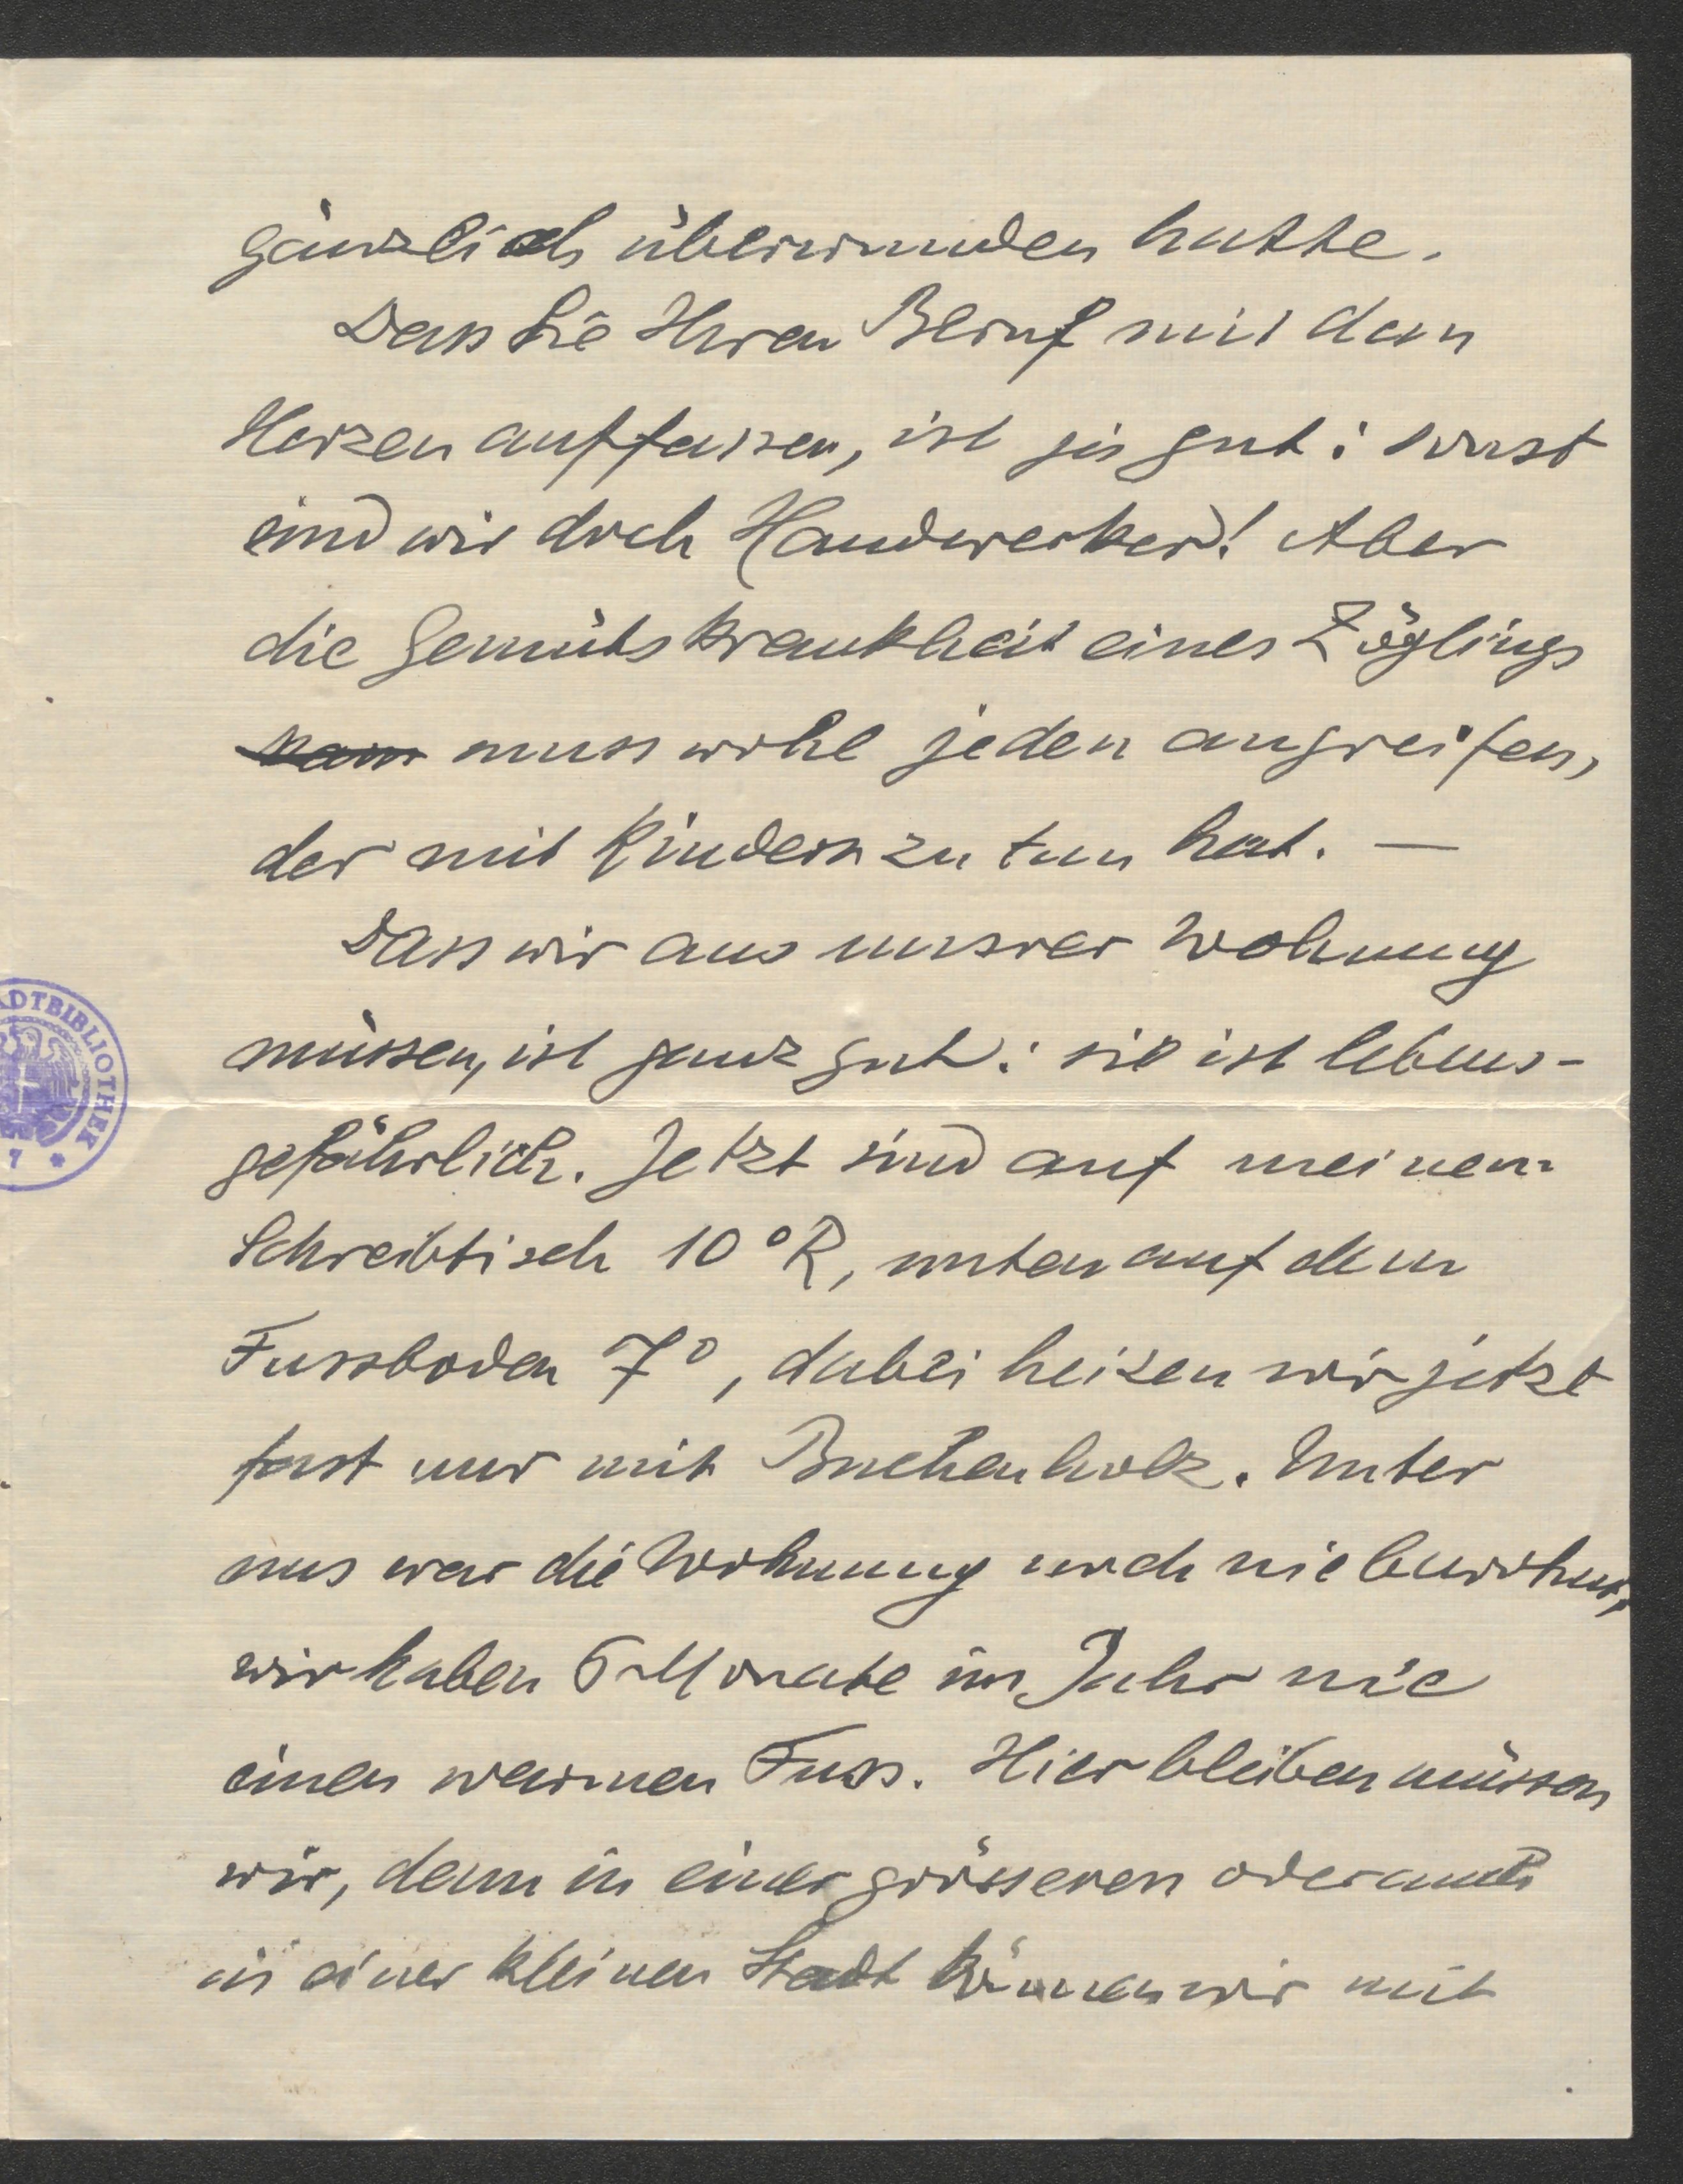 gänzlich überwunden hatte.
Dass Sie Ihren Beruf mit dem
Herzen auffassen, ist ja gut: sonst
sind wir doch Handwerker! Aber
die Gemütskrankheit eines Zöglings
kann muss wohl jeden angreifen,
der mit Kindern zu tun hat. —
Dass wir aus unsrer Wohnung
müssen, ist ganz gut: sie ist lebens-
gefährlich. Jetzt sind auf meinem
Schreibtisch 10° R, unten auf dem
Fussboden 7°, dabei heizen wir jetzt
fast nur mit Buchenholz. Unter
uns war die Wohnung noch nie bewohnt,
wir haben 6 Monate im Jahr nie
einen warmen Fuss. Hier bleiben müssen
wir, denn in einer grösseren oder auch
in einer kleinen Stadt können wir mit
ADTBIBLIOTHEK
7 *